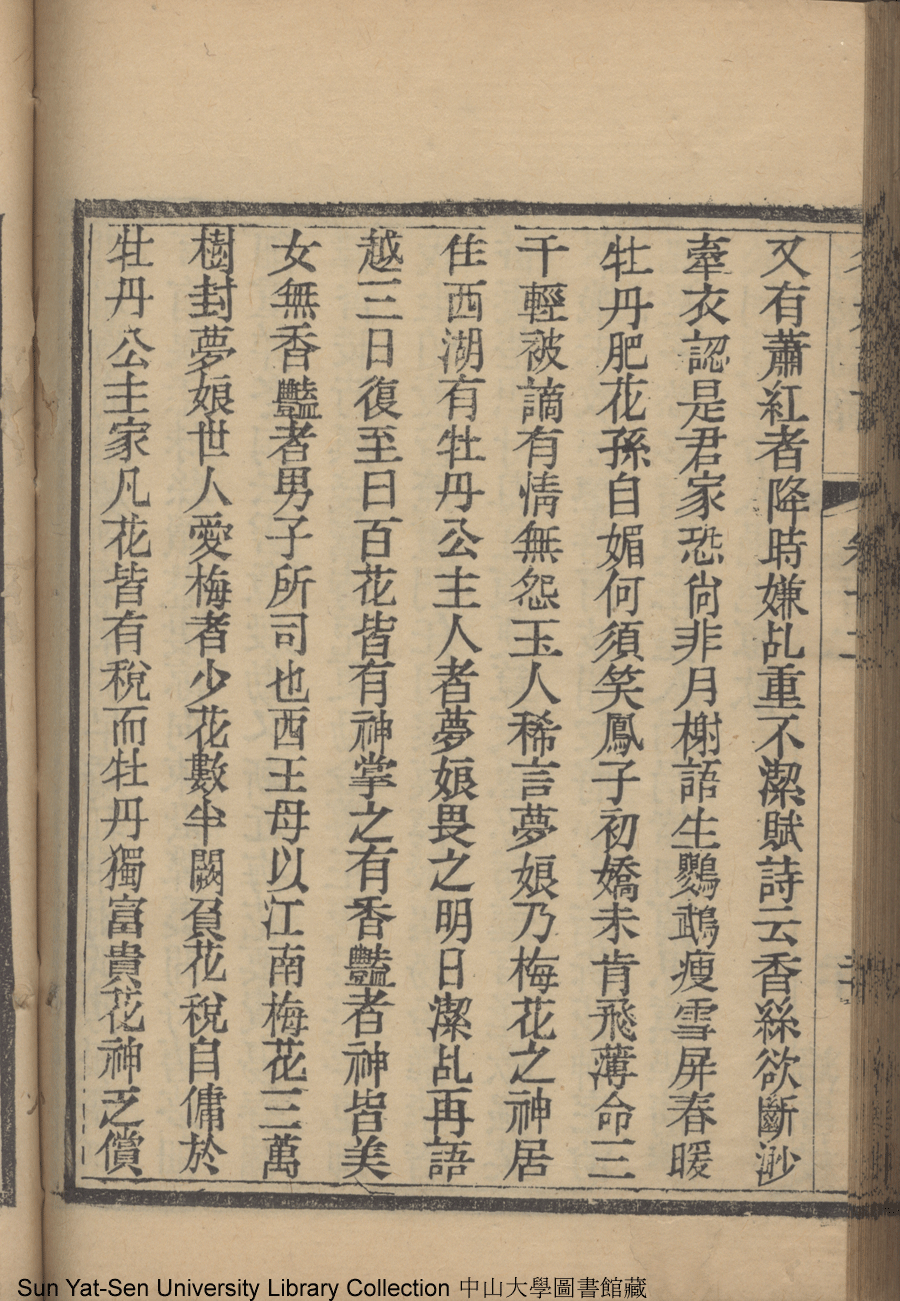 又有蕭紅者降時嫌乩重不潔賦詩云香絲欲斷渺
牽衣認是君家恐尙非月榭語生鸚鵡瘦雪屏春暖
牡丹肥花孫自媚何須笑鳳子初嬌未肯飛薄命三
千輕被謫有情無怨玉人稀言夢娘乃梅花之神居
住西湖有牡丹公主人者夢娘畏之明日潔乩再語
越三日復至曰百花皆有神掌之有香豔者神皆美
女無香豔者男子所司也西王母以江南梅花三萬
樹封夢娘世人愛梅者少花數半闕負花稅自傭於
牡丹公主家凡花皆有稅而牡丹獨富貴花神乏償
Sun Yat-Sen University Library Collection 中山大學圖書館藏